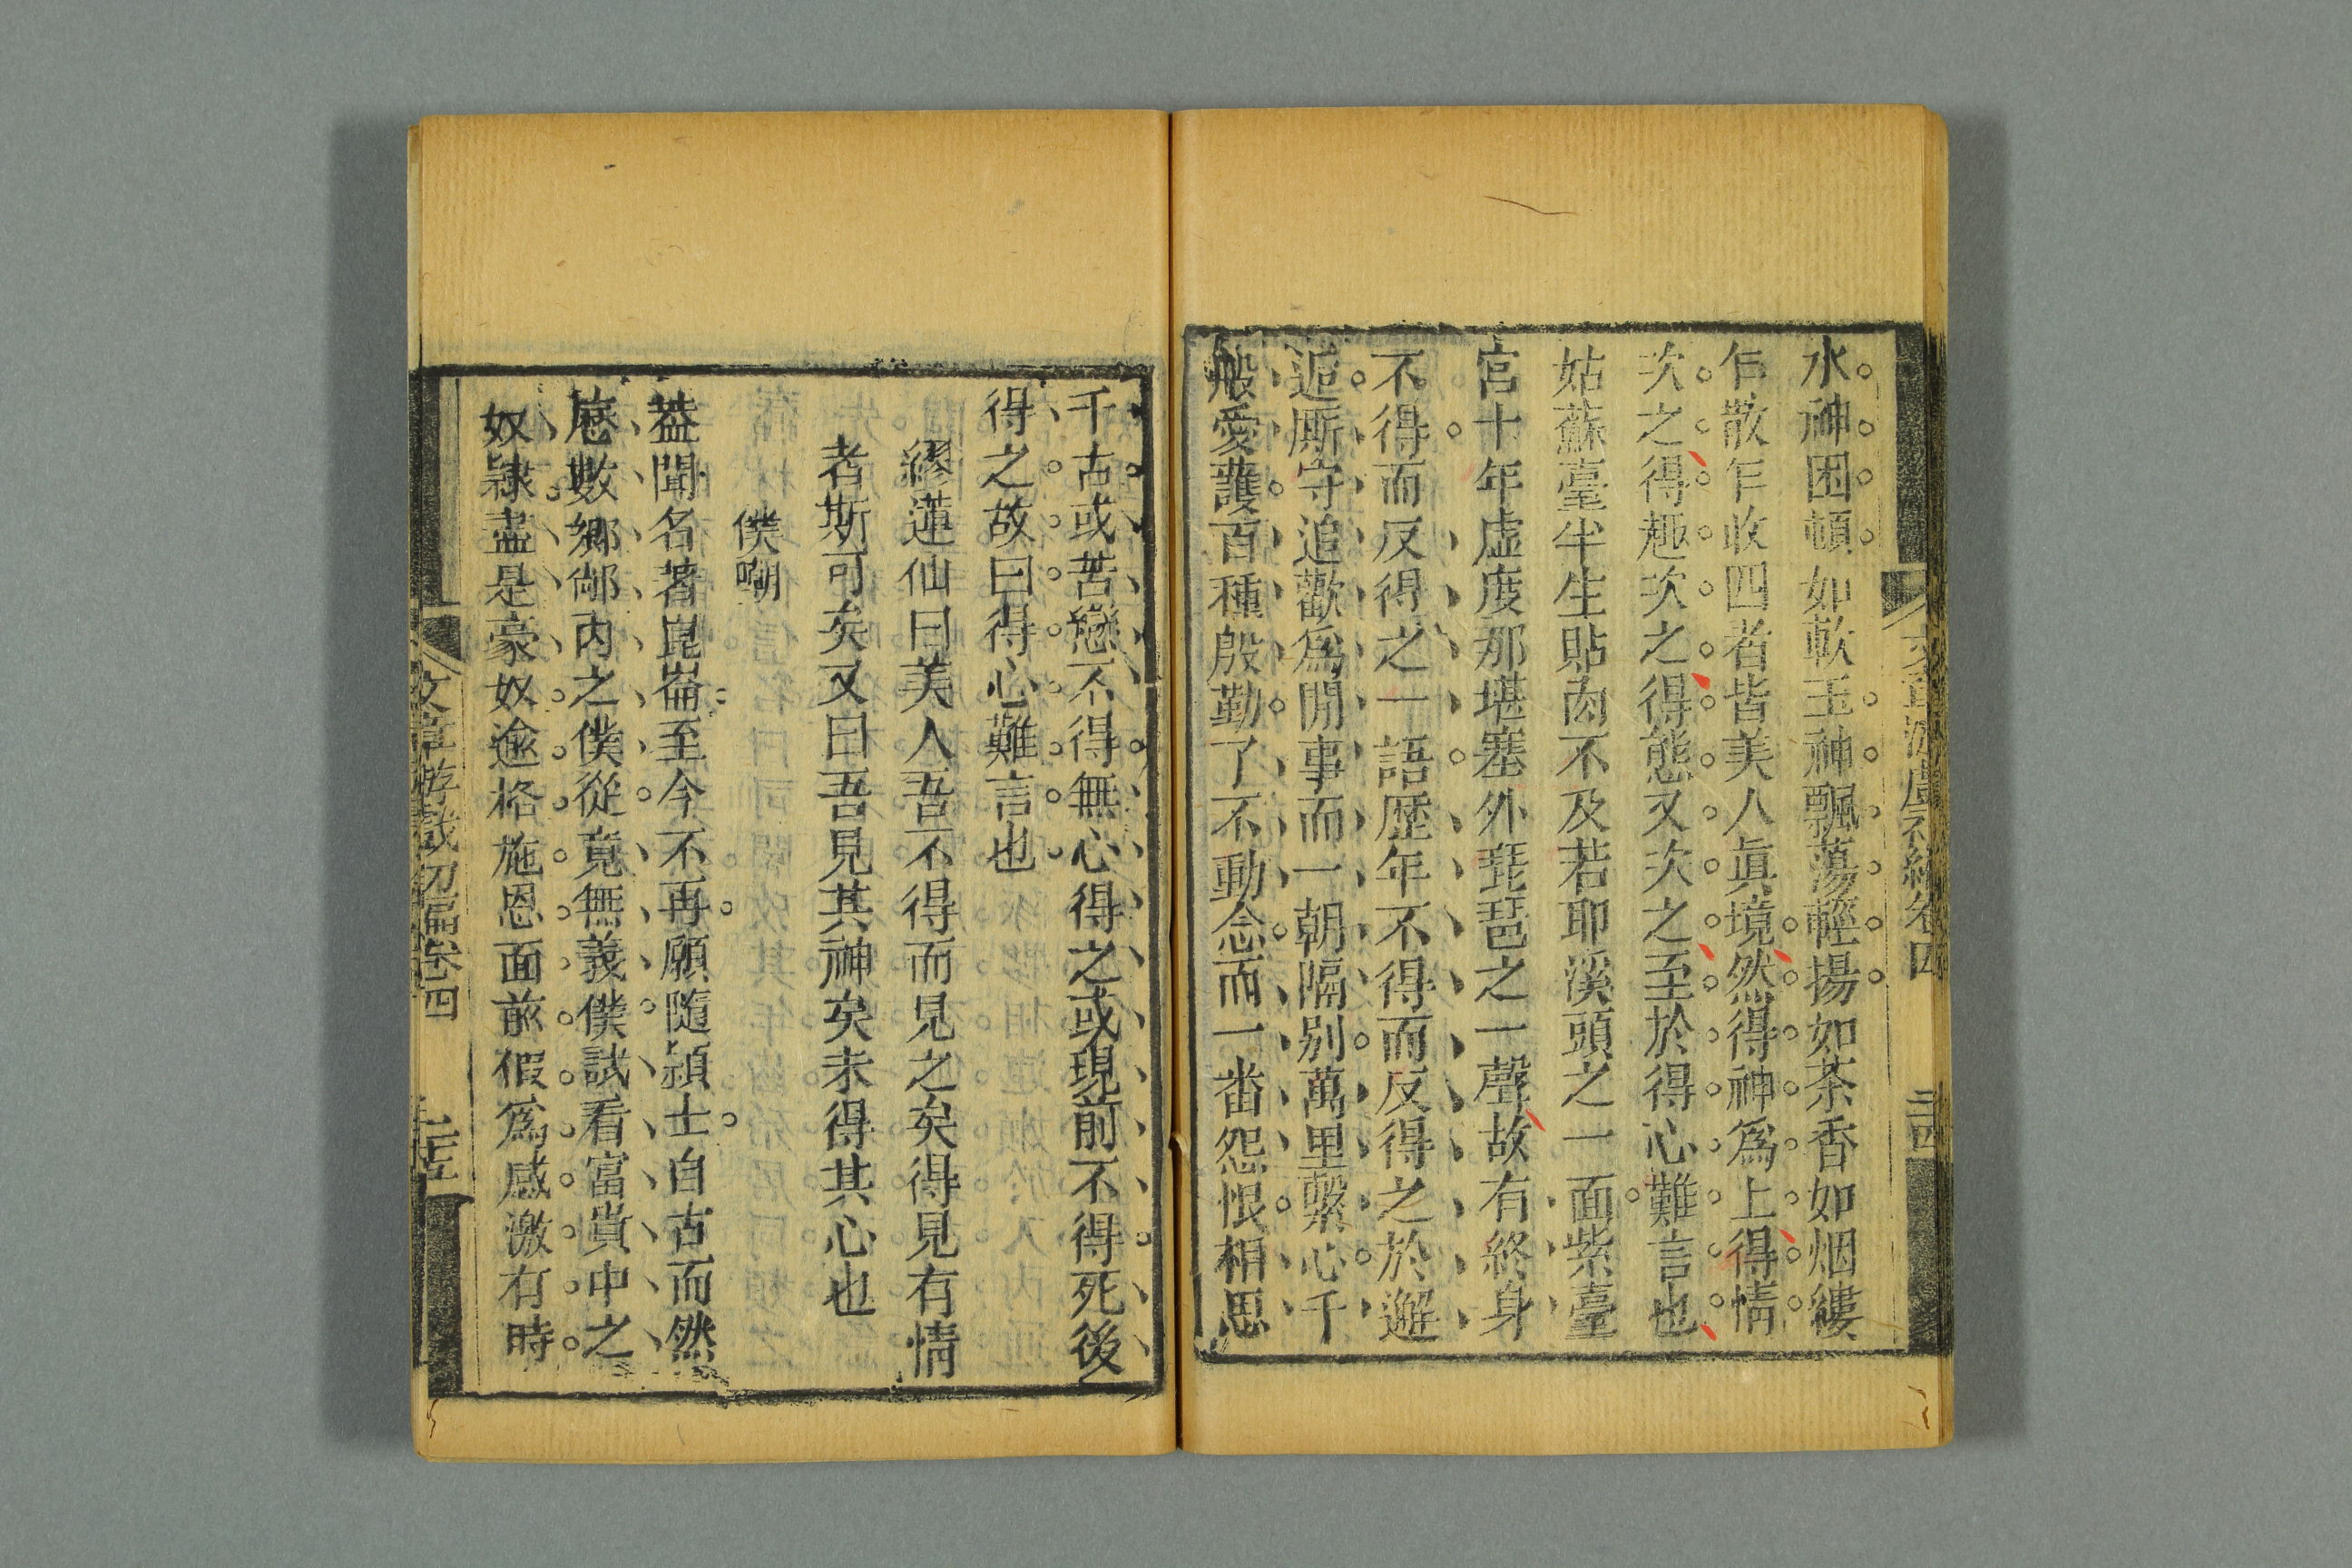 水神困頓如軟玉神飄蕩輕揚如茶香如烟縷
乍散乍收四者皆美人眞境然得神爲上得情
次之得趣次之得態又次之至於得心難言也
姑蘇臺半生貼肉不及若耶溪頭之一面紫臺
宮十年虛度那堪塞外琵琶之一聲故有終身
不得而反得之一語歷年不得而反得之於邂
逅厮守追歡爲閒事而一朝隔別萬里繫心千
般愛護百種殷勤了不動念而一番怨恨相思
千古或苦戀不得無心得之或現前不得死後
得之故曰得心難言也
繆蓮仙曰美人吾不得而見之矣得見有情
者斯可矣又曰吾見其神矣未得其心也
僕嘲
葢聞名著崑崙至今不再願隨潁士自古而然
慿數鄉鄰內之僕從竟無義僕試看富貴中之
奴隸盡是豪奴逾格施恩面前假爲感激有時
文章游戲初編卷四
二十五